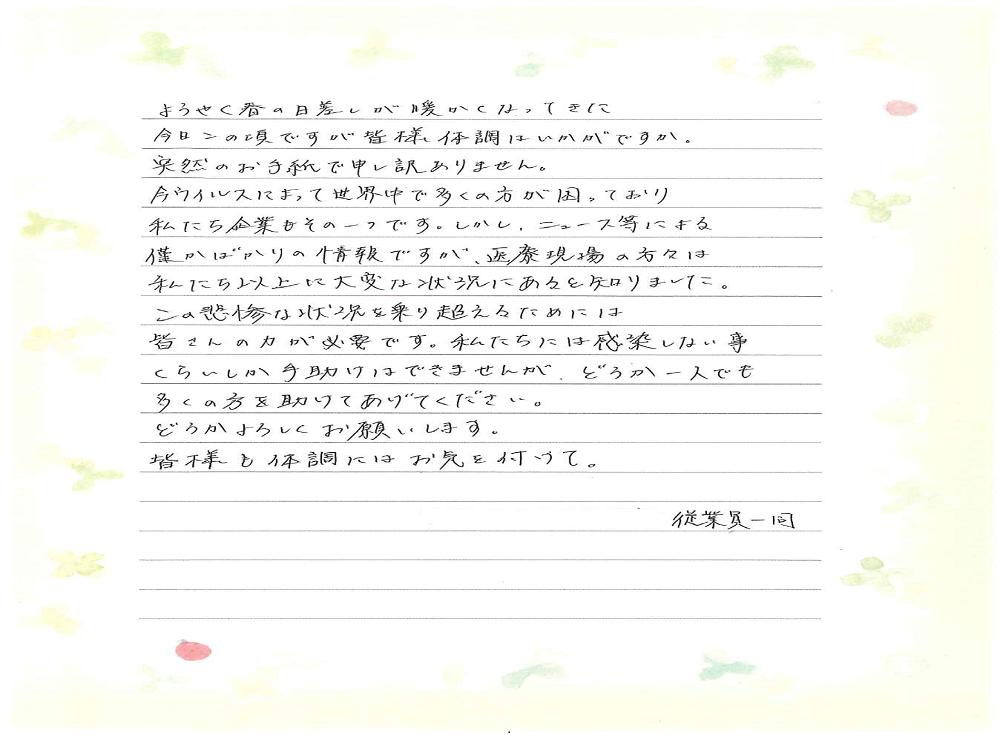 ようやく春の日差しが暖かくなってきた
今日この頃ですが皆様体調はいかがですか。
突然のお手紙で申し訳ありません。
今ウイルスによって世界中で多くの方が困っており
私たち企業もその一つです。しかし、ニュース等による
僅かばかりの情報ですが、医療現場の方々は
私たち以上に大変な状況にあると知りました。
この悲惨な状況を乗り超えるためには
皆さんの力が必要です。私たちには感染しない事
くらいしか手助けはできませんが、どうか一人でも
多くの方を助けてあげてください。
どうかよろしくお願いします。
皆様も体調にはお気を付けて。
従業員一同